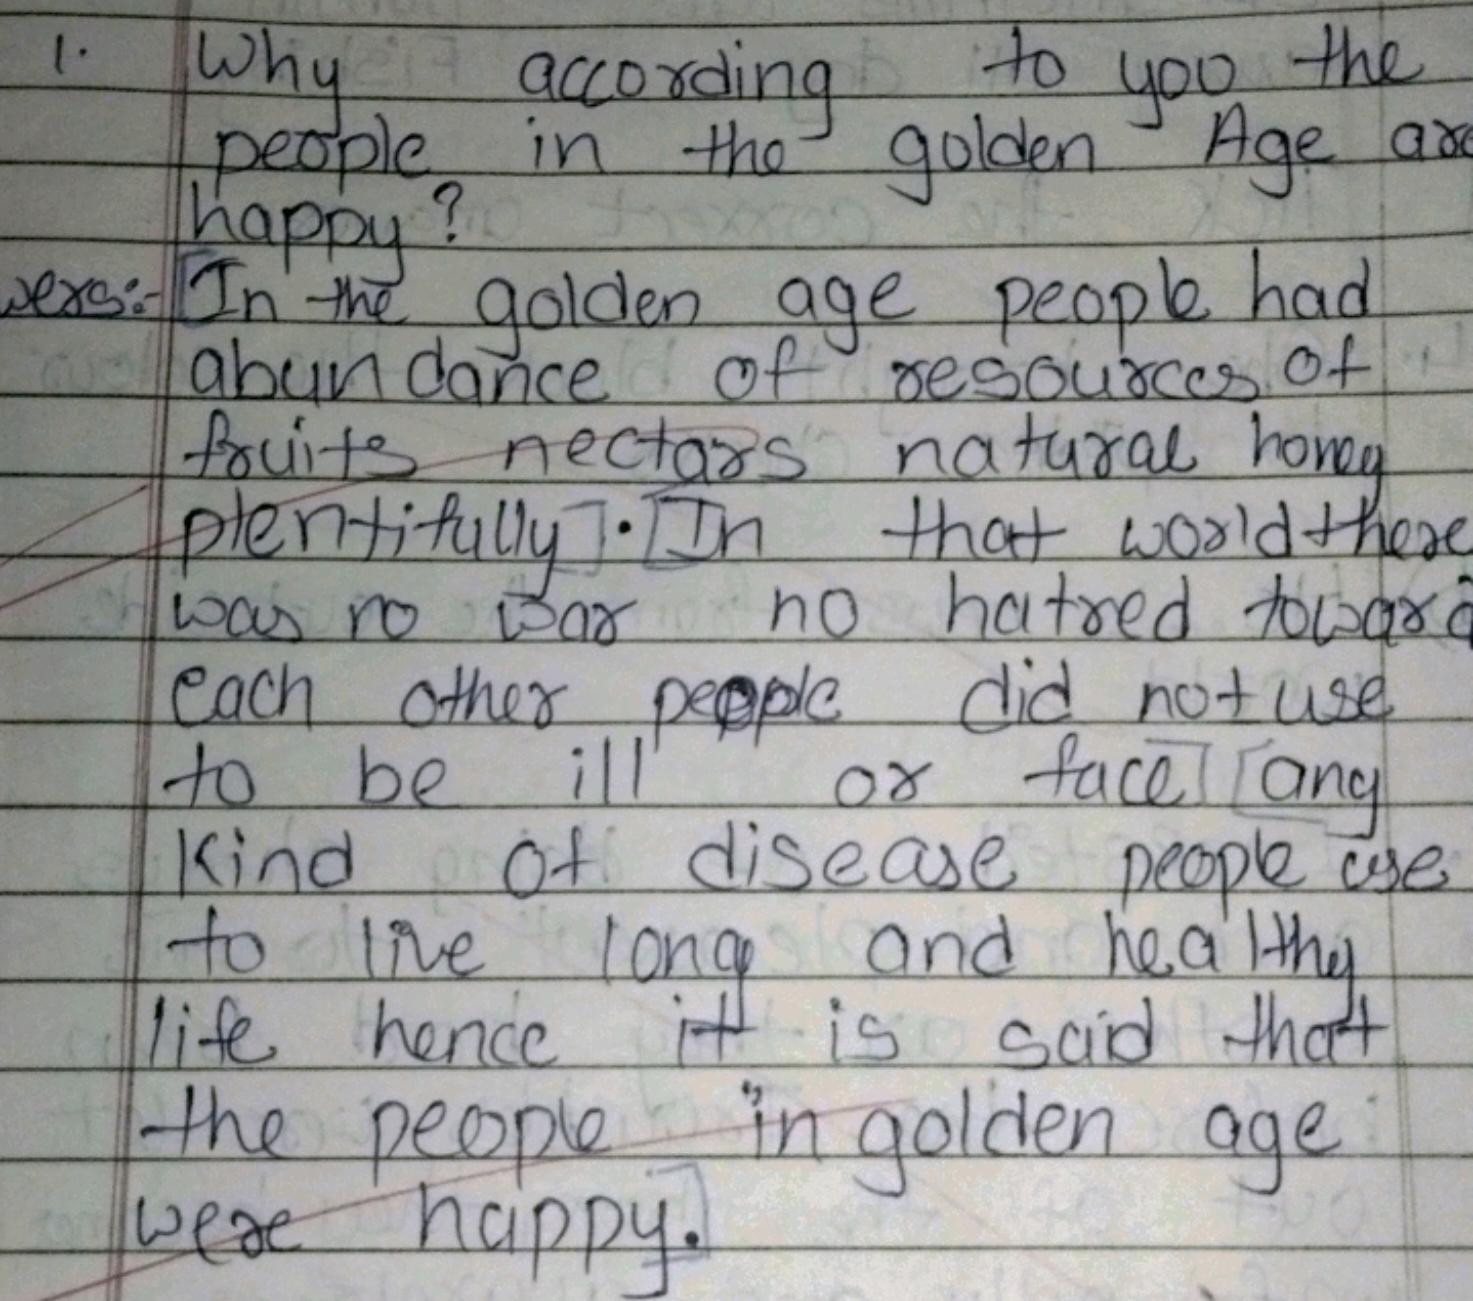 1. Why according to you the
people in the golden Age are
happy?
wers:- [In the golden age people had
abundance of resources of
fruits nectars natural honey
plentifully]. [In that world there
was no war no hatred toward
each other people did not use
to be ill or face] [any
kind of disease people use
to live long and healthy
life hence it is said that
the people in golden age
were happy.]